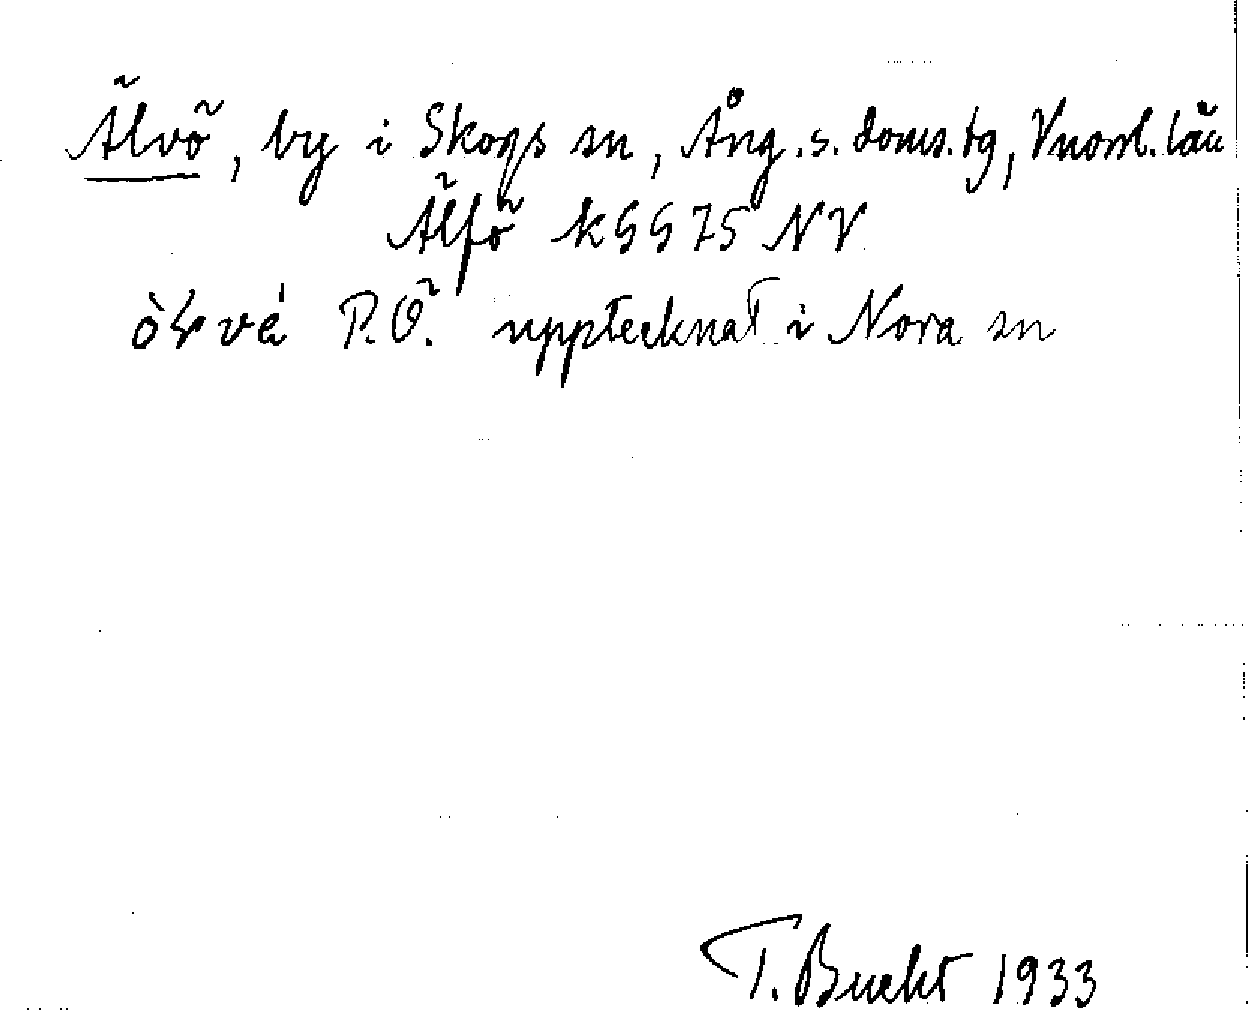 Älvö, by i Skogs sn, Ång. s. doms. tg, Vnorrl. län
Älfö k GS 75 NV
P.Ö. upptecknat i Nora sn
T. Bucht 1933